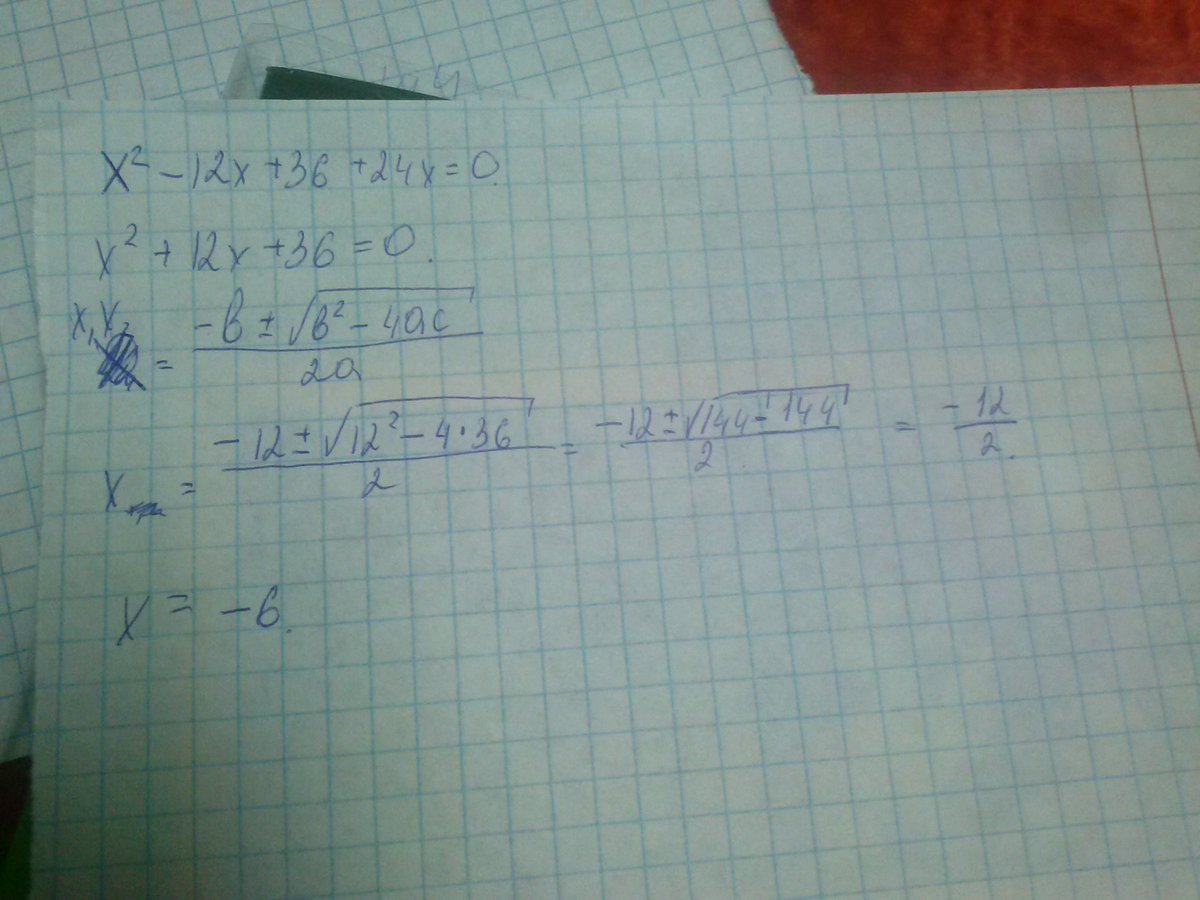 x² - 12x + 36 + 24x = 0.
x² + 12x + 36 = 0.
x₁x₂ = (-b ± √(b² - 4ac)) / 2a
x = (-12 ± √(12² - 4·36)) / 2 = (-12 ± √(144 - 144)) / 2 = -12 / 2.
x = -6.